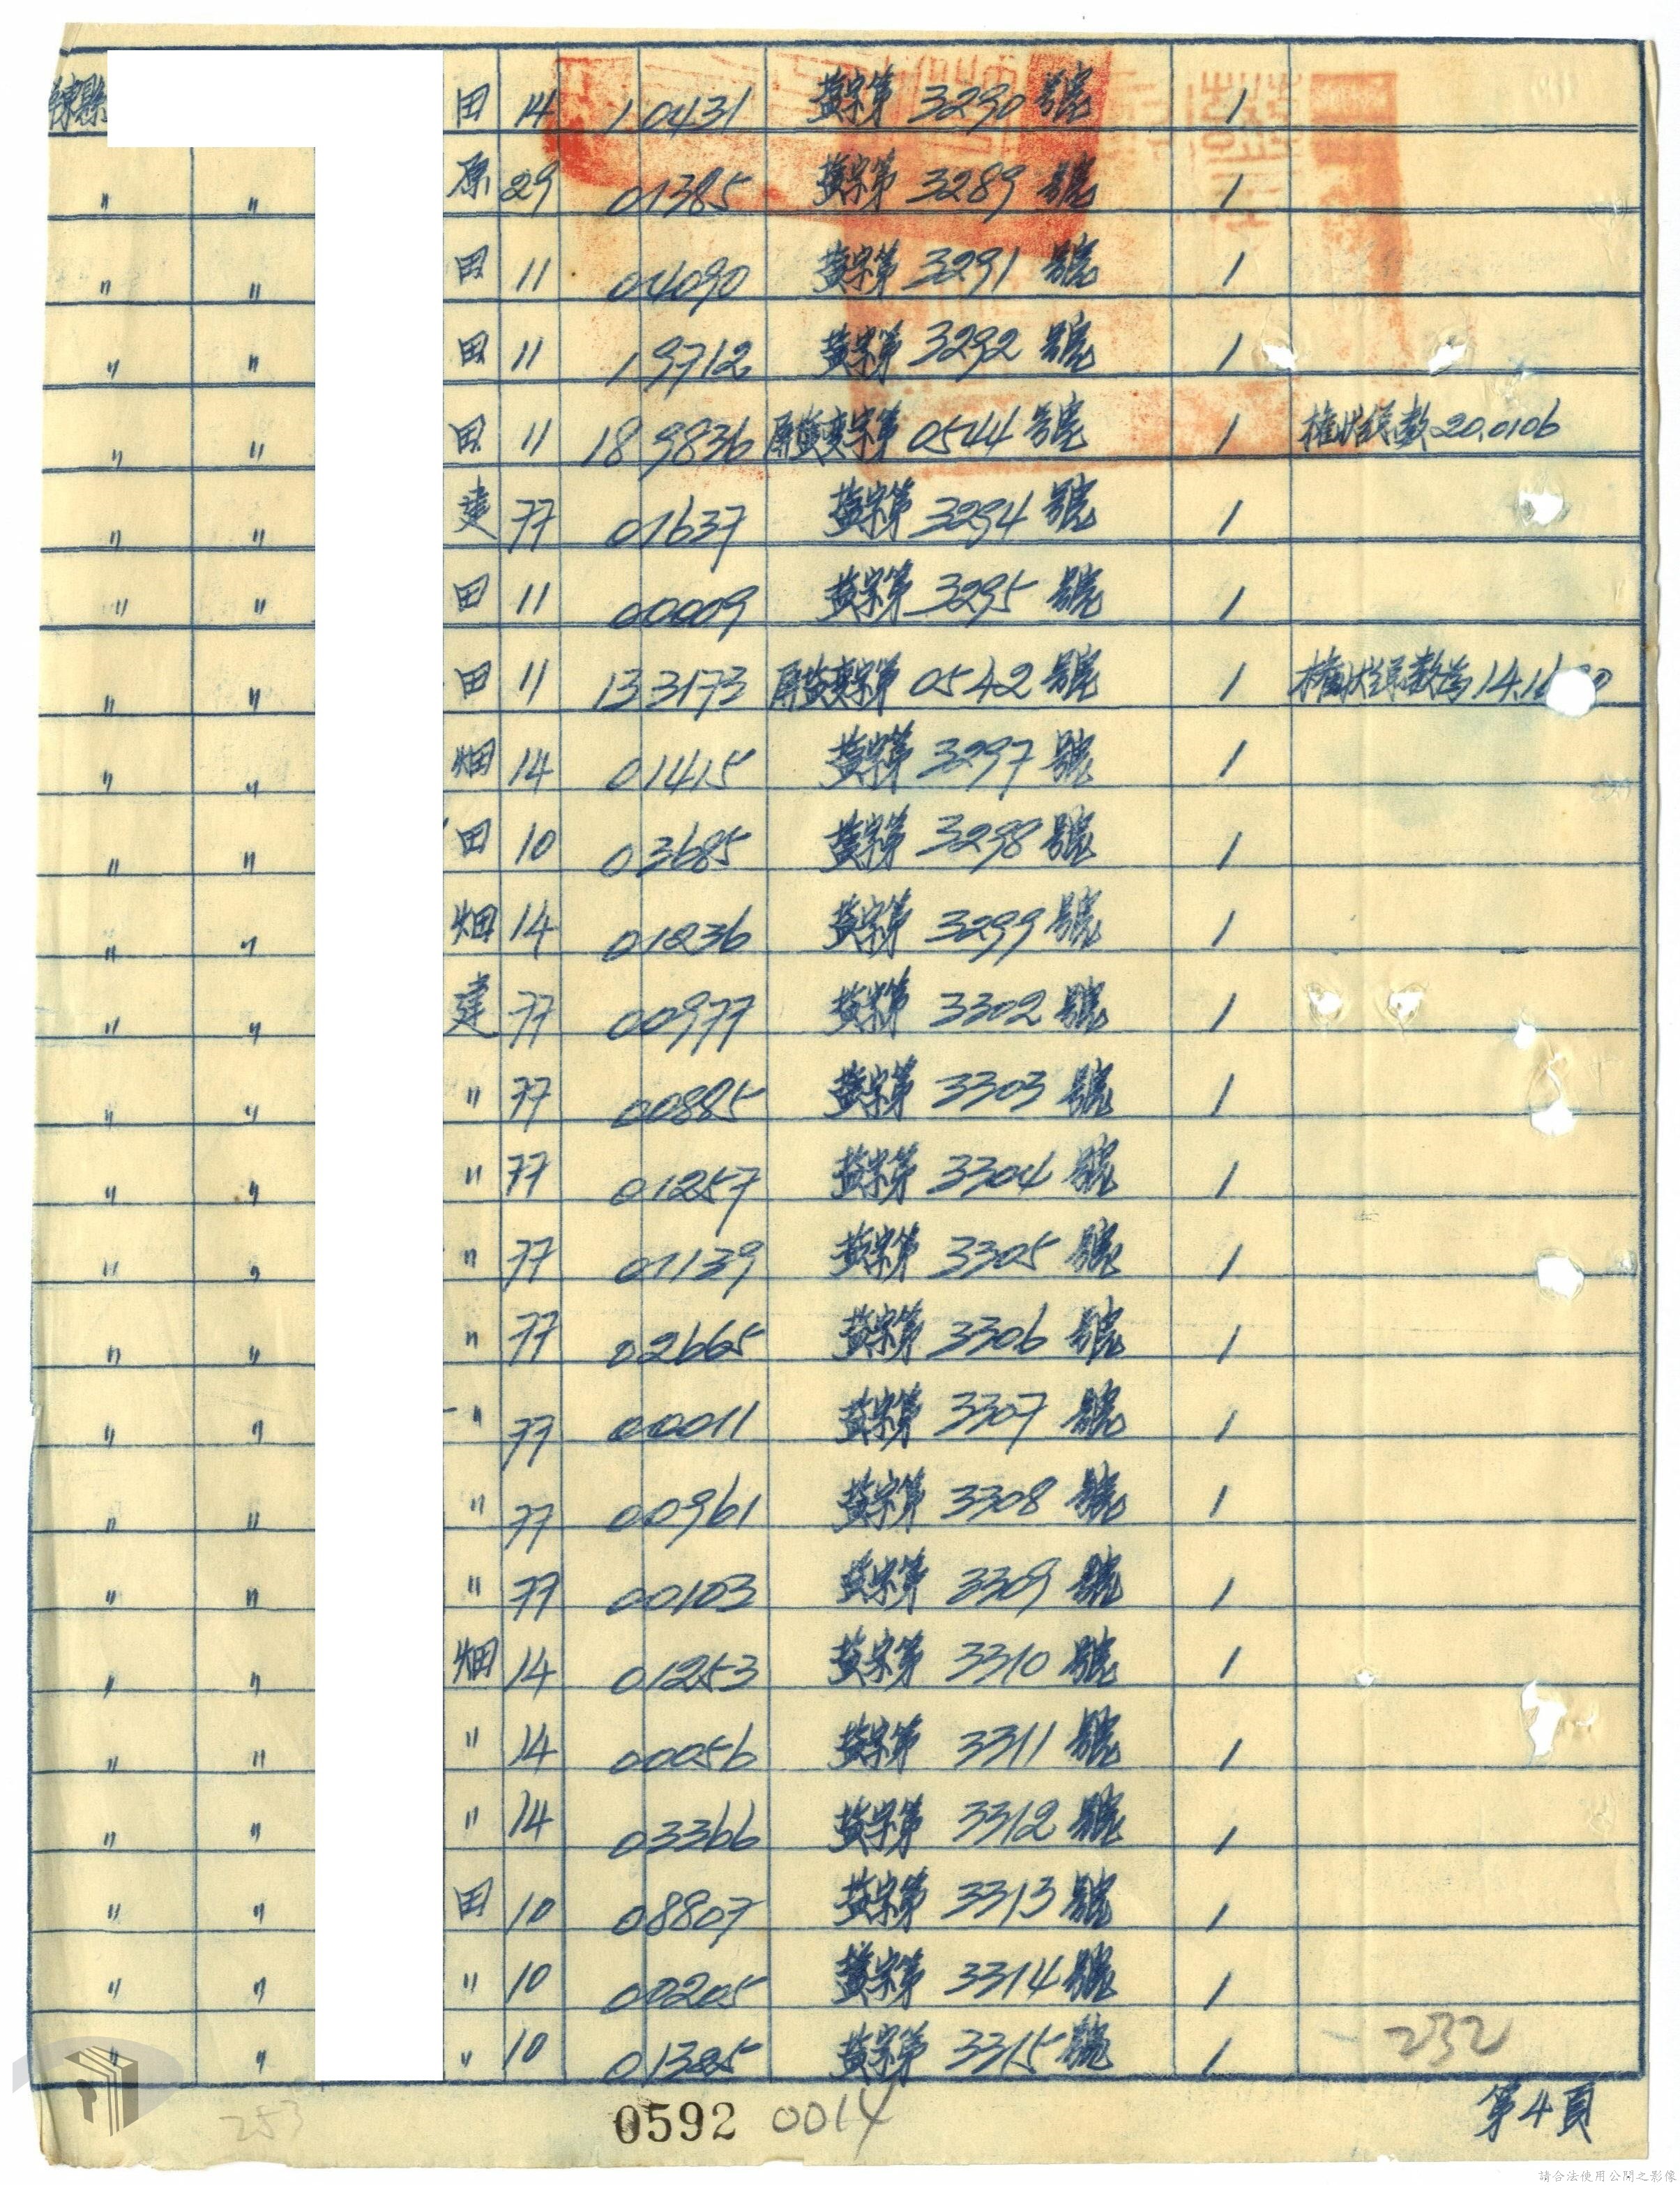 東縣 田 14 1 0431 鹽字第 3290 號 1
〃 〃 原 29 0 1385 鹽字第 3289 號 1
〃 〃 田 11 0 4090 鹽字第 3291 號 1
〃 〃 田 11 1 9712 鹽字第 3292 號 1
〃 〃 田 11 18 9836 屏鹽變字第 0544 號 1 權狀終數 20.0106
〃 〃 建 77 0 1637 鹽字第 3294 號 1
〃 〃 田 11 0 0009 鹽字第 3295 號 1
〃 〃 田 11 13 3173 屏鹽變字第 0542 號 1 數為 14.1
〃 〃 畑 14 0 1415 鹽字第 3297 號 1
〃 〃 田 10 0 3685 鹽字第 3298 號 1
〃 〃 畑 14 0 1236 鹽字第 3299 號 1
〃 〃 建 77 0 0977 鹽字第 3302 號 1
〃 〃 〃 77 0 0885 鹽字第 3303 號 1
〃 〃 〃 77 0 1257 鹽字第 3304 號 1
〃 〃 〃 77 0 1139 鹽字第 3305 號 1
〃 〃 〃 77 0 2665 鹽字第 3306 號 1
〃 〃 〃 77 0 0011 鹽字第 3307 號 1
〃 〃 〃 77 0 0961 鹽字第 3308 號 1
〃 〃 〃 77 0 0103 鹽字第 3309 號 1
〃 〃 畑 14 0 1253 鹽字第 3310 號 1
〃 〃 〃 14 0 0056 鹽字第 3311 號 1
〃 〃 〃 14 0 3366 鹽字第 3312 號 1
〃 〃 田 10 0 8807 鹽字第 3313 號 1
〃 〃 〃 10 0 0205 鹽字第 3314 號 1
〃 〃 〃 10 0 1385 鹽字第 3315 號 1
232
253 0592 0014 第4頁
請合法使用公開之影像